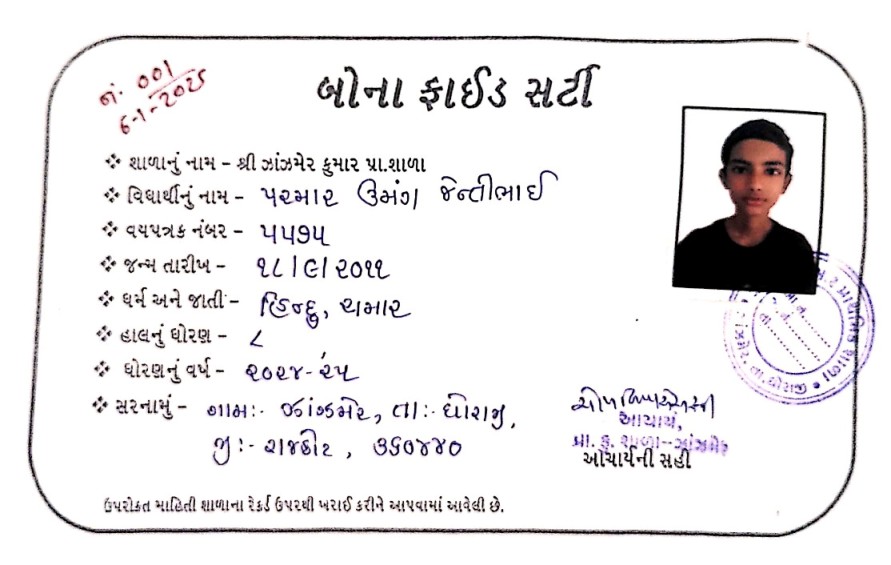 નં. 001
6-1-2025
બોના ફાઈડ સર્ટી
❖ શાળાનું નામ - શ્રી ઝાંઝમેર કુમાર પ્રા.શાળા
❖ વિદ્યાર્થીનું નામ - પરમાર ઉમંગ જેન્તીભાઈ
❖ વયપત્રક નંબર - ૫૫૭૫
❖ જન્મ તારીખ - ૧૮/૯/૨૦૧૧
❖ ધર્મ અને જાતી - હિન્દુ, ચમાર
❖ હાલનું ધોરણ - ૮
❖ ધોરણનું વર્ષ - ૨૦૨૪-૨૫
❖ સરનામું - ગામ:- ઝાંઝમેર, તા:- ધોરાજી,
જી:- રાજકોટ, ૩૬૦૪૪૦
આચાર્ય,
પ્રા. કુ. શાળા-ઝાંઝમેર
આચાર્યની સહી
ઉપરોક્ત માહિતી શાળાના રેકર્ડ ઉપરથી ખરાઈ કરીને આપવામાં આવેલી છે.